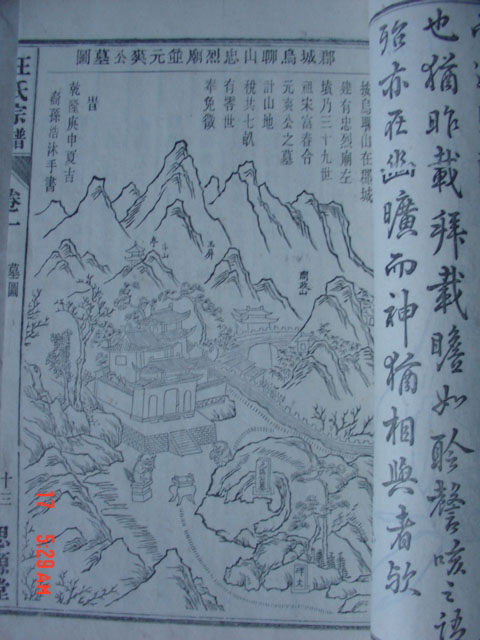 也猶昨載拜載瞻如聆謦咳之語
殆亦在幽曠而神猶相與者欤
郡城烏聊山忠烈廟並元奭公墓圖
按烏聊山在郡城
建有忠烈廟左
墳乃三十九世
祖宋富春合
元奭公之墓
計山地
稅共七畝
有零世
奉免徵
旹
乾隆庚申夏吉
裔孫浩沐手書
玉屏
汪氏宗譜
卷一
墓圖
十三
思源堂
17 5:29 AM